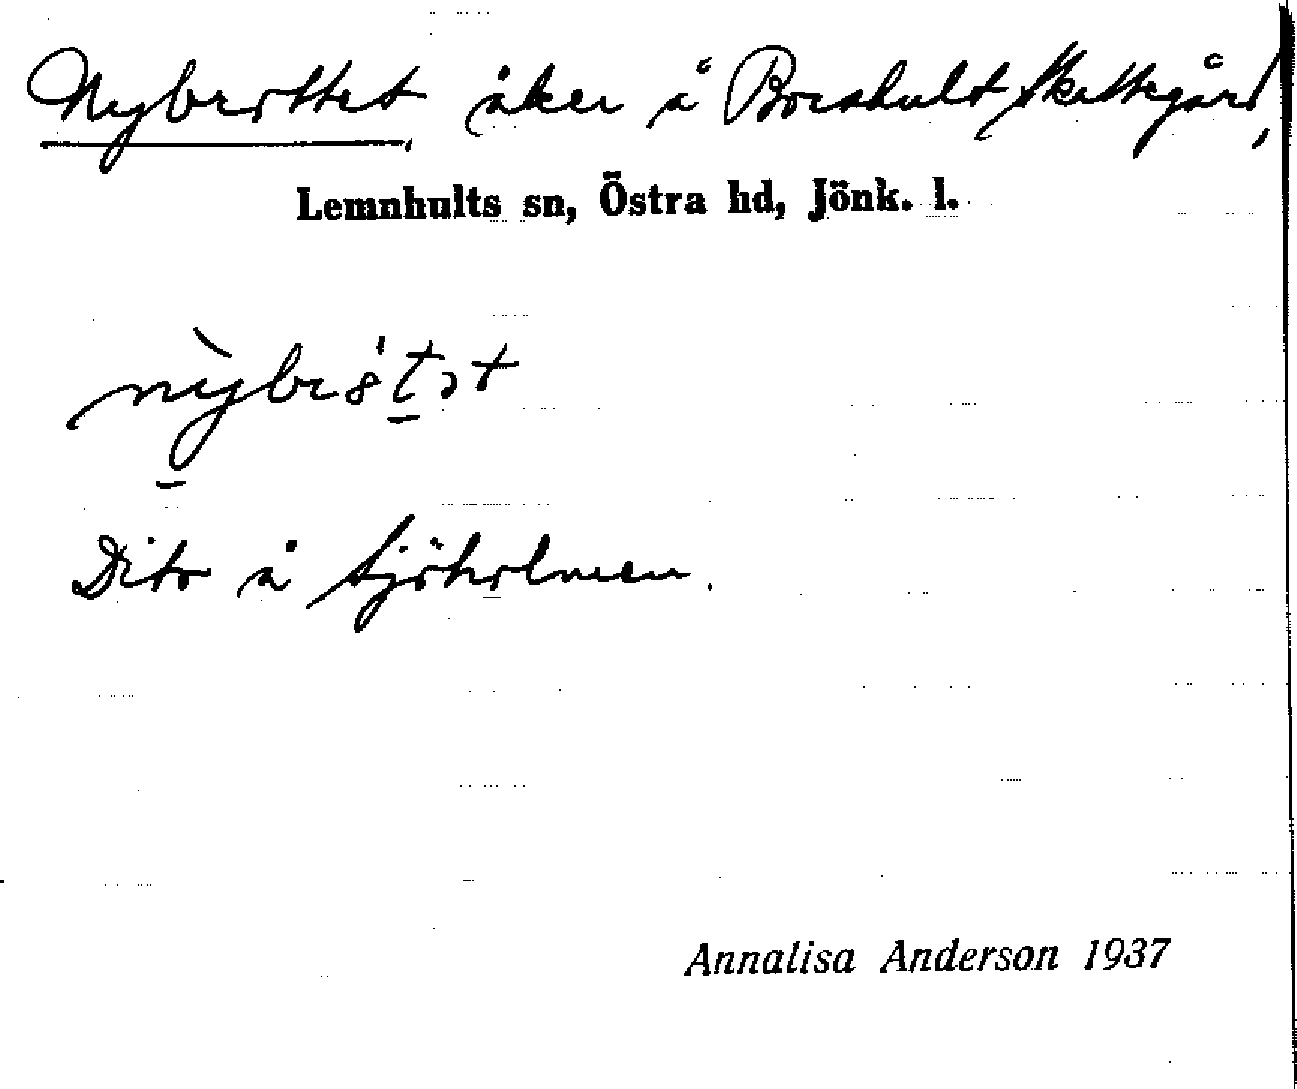 Nybrottet, åker å Broahult Skattegård,
Lemnhults sn, Östra hd, Jönk. l.
Dito å Sjöholmen.
Annalisa Anderson 1937